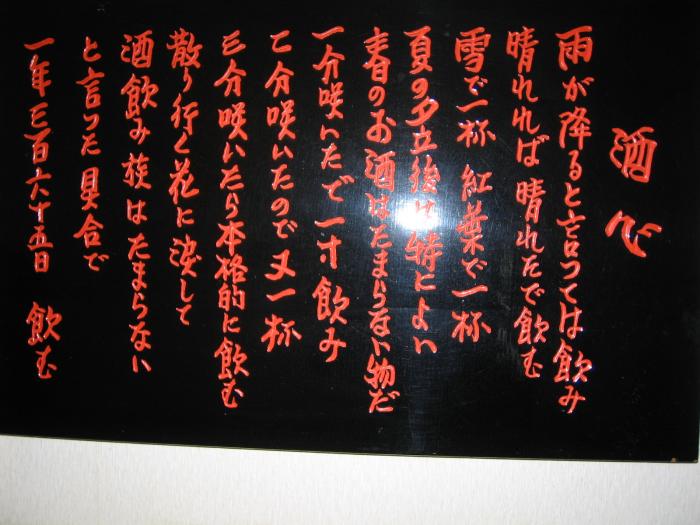 酒心
雨が降ると言っては飲み
晴れれば晴れたで飲む
雪で一杯 紅葉で一杯
夏の夕立後は特によい
春のお酒はたまらない物だ
一分咲いたで一寸飲み
二分咲いたので又一杯
三分咲いたら本格的に飲む
散り行く花に涙して
酒飲み族はたまらない
と言った具合で
一年三百六十五日 飲む